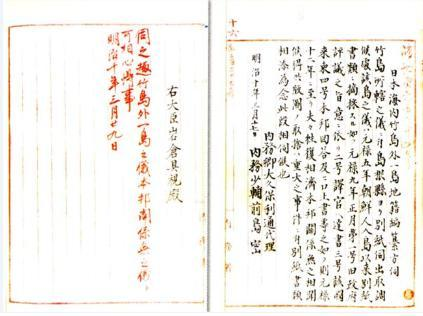 日本海内竹島外一島地籍編纂方伺
竹島所轄之儀ニ付島根縣ヨリ別紙伺出取調
候處該島之儀ハ元禄五年朝鮮人入島以来別紙
書類ニ摘採スル如ク元禄九年正月第一号旧政府
評議之旨意ニ依リ二号譯官ヘ達書三号該國
来柬四号本邦回答及ヒ口上書等之如ク則元禄
十二年ニ至リ夫々往復相濟本邦關係無之相聞
候得共版圖ノ取捨ハ重大之事件ニ付別紙書類
相添為念此段相伺候也
明治十年三月十七日
内務卿大久保利通代理
内務少輔前島密
右大臣岩倉具視殿
伺之趣竹島外一島之儀本邦關係無之儀ト
可相心得事
明治十年三月廿九日
十六